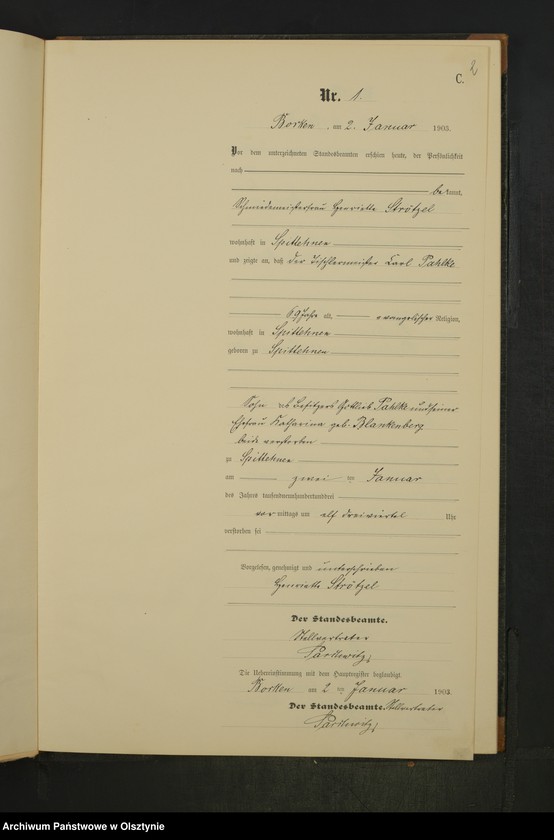 C.
2
Nr. 1.
Borken am 2. Januar 1903.
Vor dem unterzeichneten Standesbeamten erschien heute, der Persönlichkeit
nach
bekannt,
Schmiedemeisterfrau Henriette Strötzel
wohnhaft in Spittehnen
und zeigte an, daß der Tischlermeister Carl Pahlke
69 Jahre alt, evangelischer Religion,
wohnhaft in Spittehnen
geboren zu Spittehnen
Sohn des Besitzers Gottlieb Pahlke und seiner
Ehefrau Katharina geb. Blankenberg
beide verstorben
zu Spittehnen
am zwei ten Januar
des Jahres tausendneunhundertunddrei
vor mittags um elf dreiviertel Uhr
verstorben sei
Vorgelesen, genehmigt und unterschrieben
Henriette Strötzel
Der Standesbeamte.
Stellvertreter
Die Uebereinstimmung mit dem Hauptregister beglaubigt.
Borken am 2 ten Januar 1903.
Der Standesbeamte. Stellvertreter
Archiwum Państwowe w Olsztynie